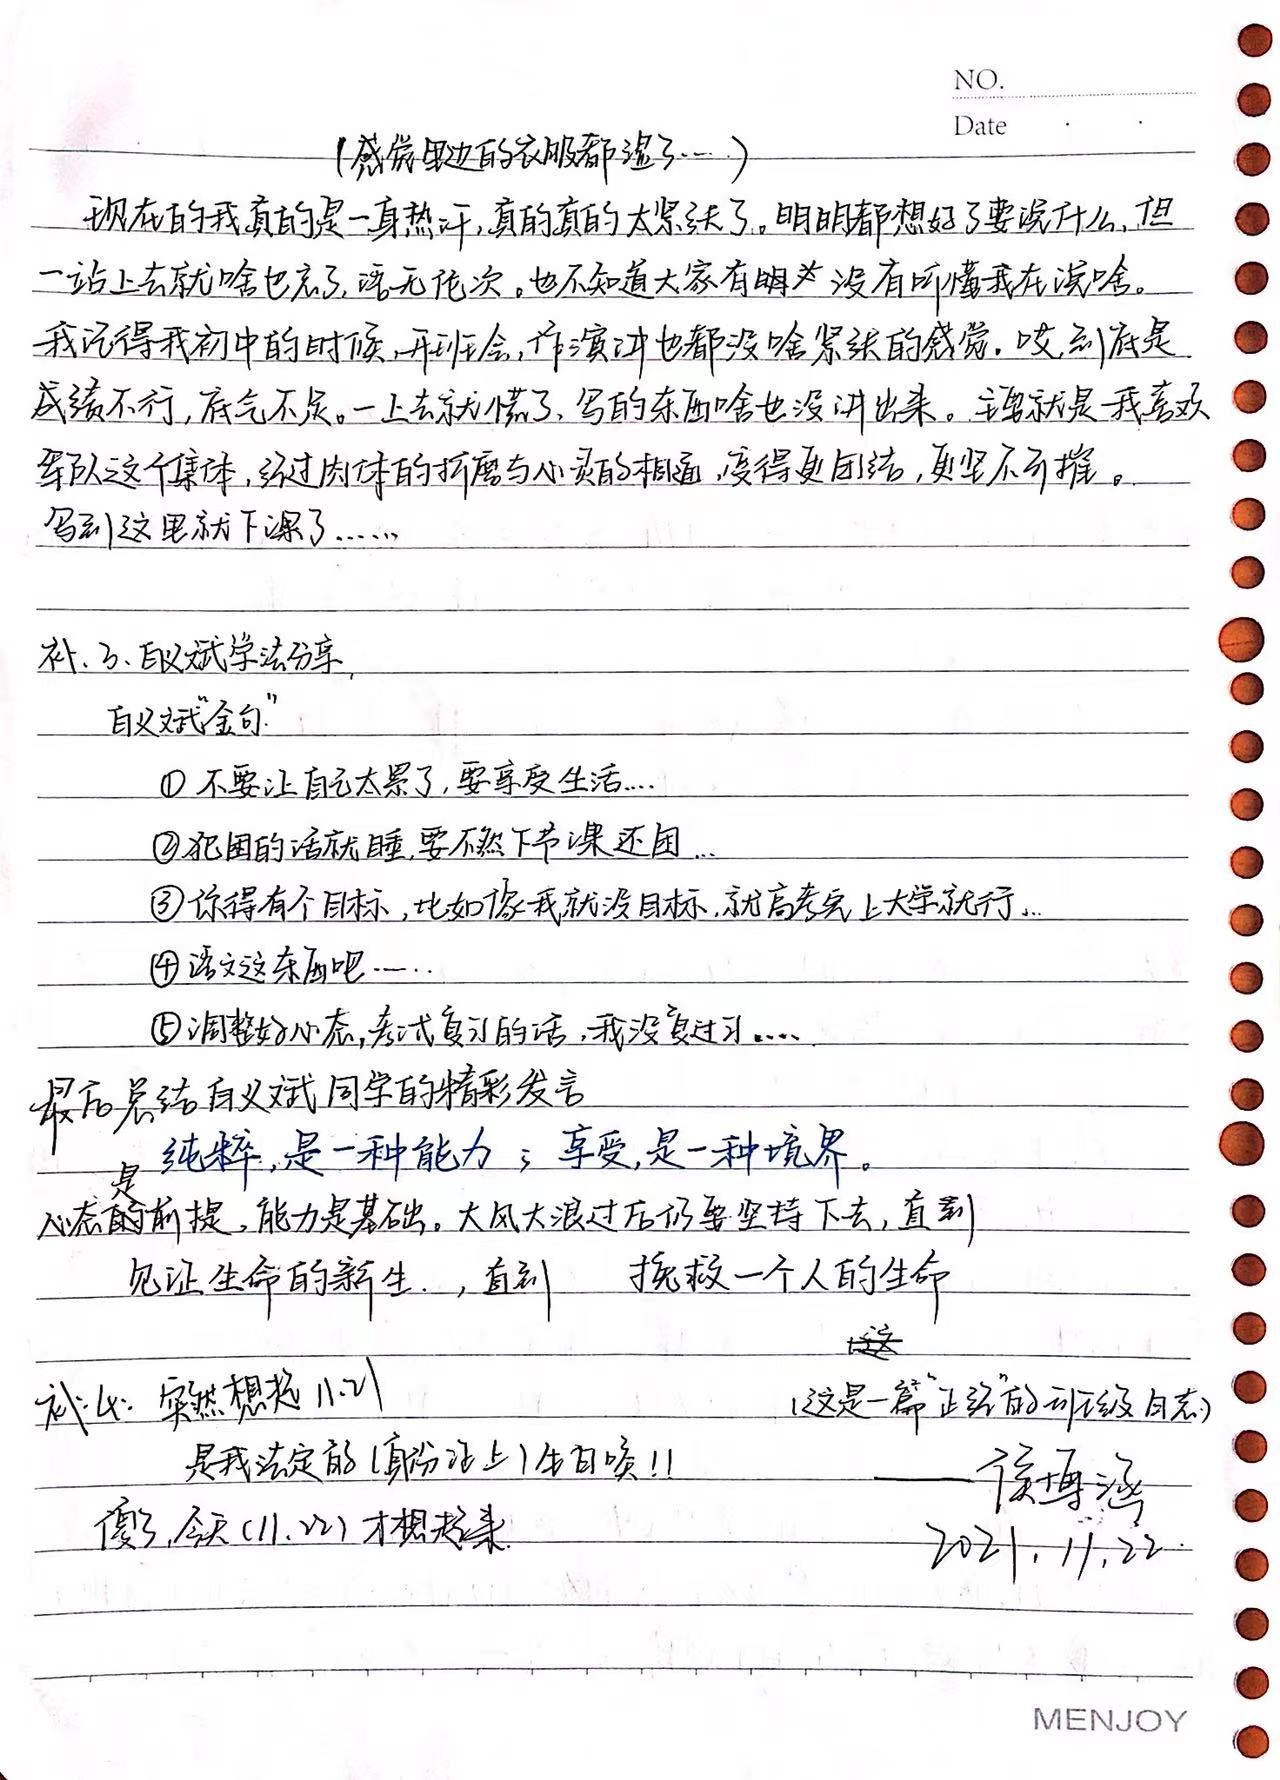 NO.
Date
(感觉里边的衣服都湿了……)
现在的我真的是一身热汗,真的真的太紧张了。明明都想好了要说什么,但
一站上去就啥也忘了,语无伦次。也不知道大家有明 没有听懂我在说啥。
我记得我初中的时候,开班会,作演讲也都没啥紧张的感觉。哎,到底是
成绩不行,底气不足。一上去就慌了,写的东西啥也没讲出来。主要就是我喜欢
军队这个集体,经过肉体的折磨与心灵的相通,变得更团结,更坚不可摧。
写到这里就下课了……
补.3、白义斌学法分享
白义斌“金句”
①不要让自己太累了,要享受生活....
②犯困的话就睡,要不然下节课还困...
③你得有个目标,比如像我就没目标,就高考完上大学就行...
④语文这东西吧……
⑤调整好心态,考试复习的话,我没复过习.....
最后总结白义斌同学的精彩发言
纯粹,是一种能力;享受,是一种境界。
是
心态的前提,能力是基础。大风大浪过后仍要坚持下去,直到
见证生命的新生.,直到 挽救一个人的生命
补.4. 突然想起11.21
(这是一篇“正经”的班级日志)
是我法定的(身份证上)生日唉!!
——侯博涵
傻了,今天(11.22)才想起来.
2021.11.22.
MENJOY